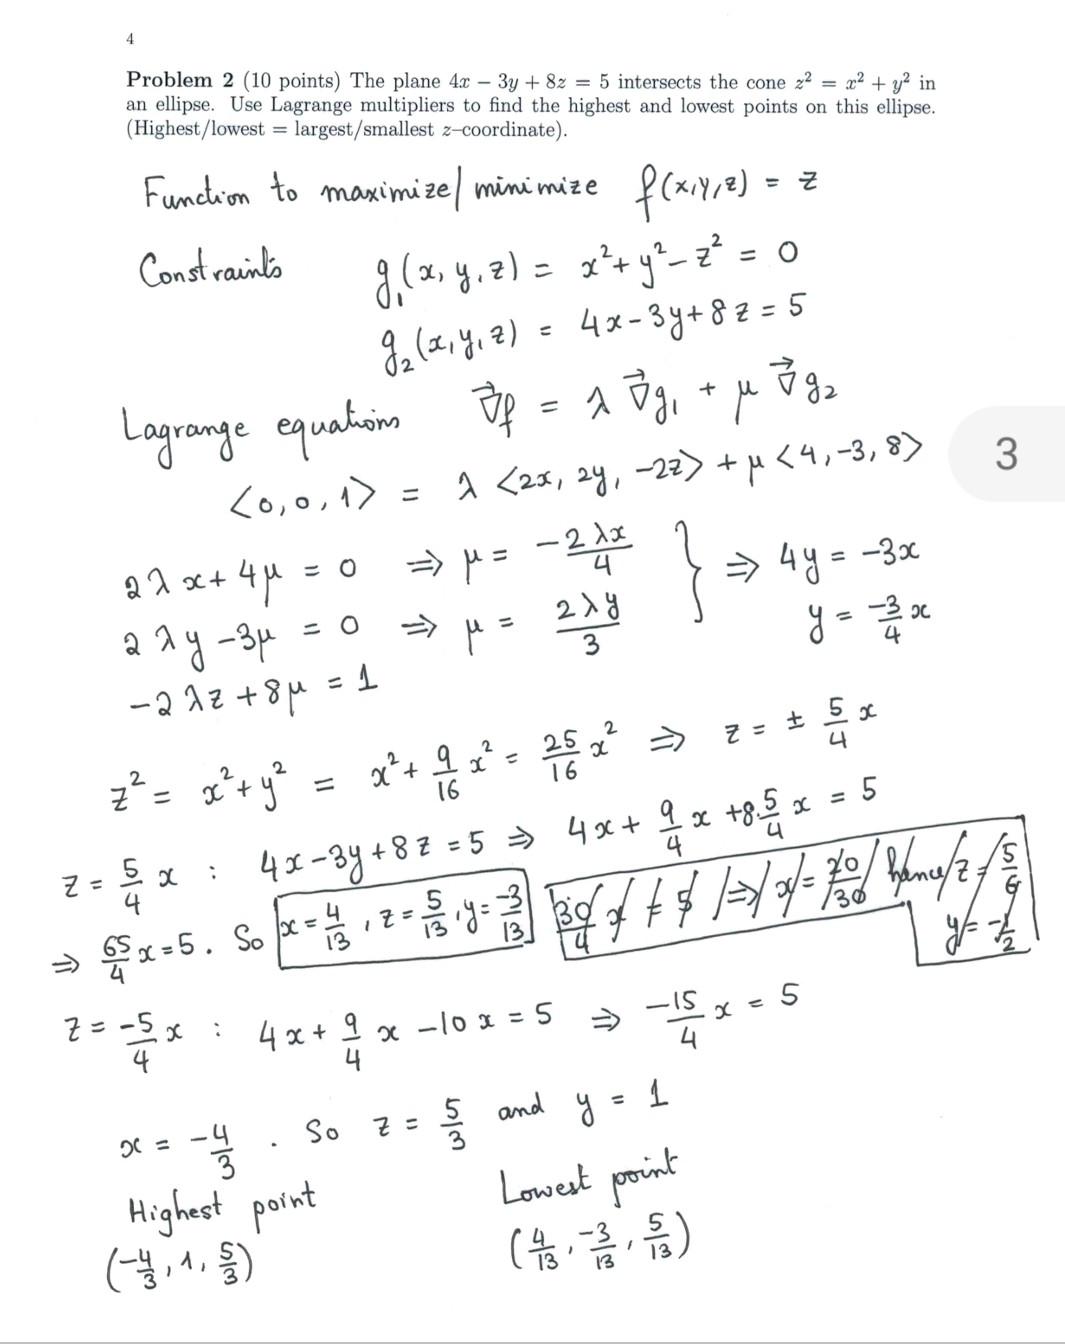 4
Problem 2 (10 points) The plane 4x − 3y + 8z = 5 intersects the cone z² = x² + y² in
an ellipse. Use Lagrange multipliers to find the highest and lowest points on this ellipse.
(Highest/lowest = largest/smallest z–coordinate).
Function to maximize/minimize f(x,y,z) = z
Constraints g₁(x, y, z) = x² + y² − z² = 0
g₂(x, y, z) = 4x − 3y + 8z = 5
Lagrange equations ∇⃗f = λ ∇⃗g₁ + μ ∇⃗g₂
3
⟨0, 0, 1⟩ = λ ⟨2x, 2y, −2z⟩ + μ ⟨4, −3, 8⟩
2λx + 4μ = 0 ⇒ μ = −2λx/4 } ⇒ 4y = −3x
2λy − 3μ = 0 ⇒ μ = 2λy/3 y = −3/4 x
−2λz + 8μ = 1
z² = x² + y² = x² + 9/16 x² = 25/16 x² ⇒ z = ± 5/4 x
z = 5/4 x : 4x − 3y + 8z = 5 ⇒ 4x + 9/4 x + 8·5/4 x = 5
⇒ 65/4 x = 5. So x = 4/13, z = 5/13, y = −3/13 30/4 x = 5 ⇒ x = 20/30 hence z = 5/6
y = −1/2
z = −5/4 x : 4x + 9/4 x − 10x = 5 ⇒ −15/4 x = 5
x = −4/3 . So z = 5/3 and y = 1
Highest point Lowest point
(−4/3, 1, 5/3) (4/13, −3/13, 5/13)